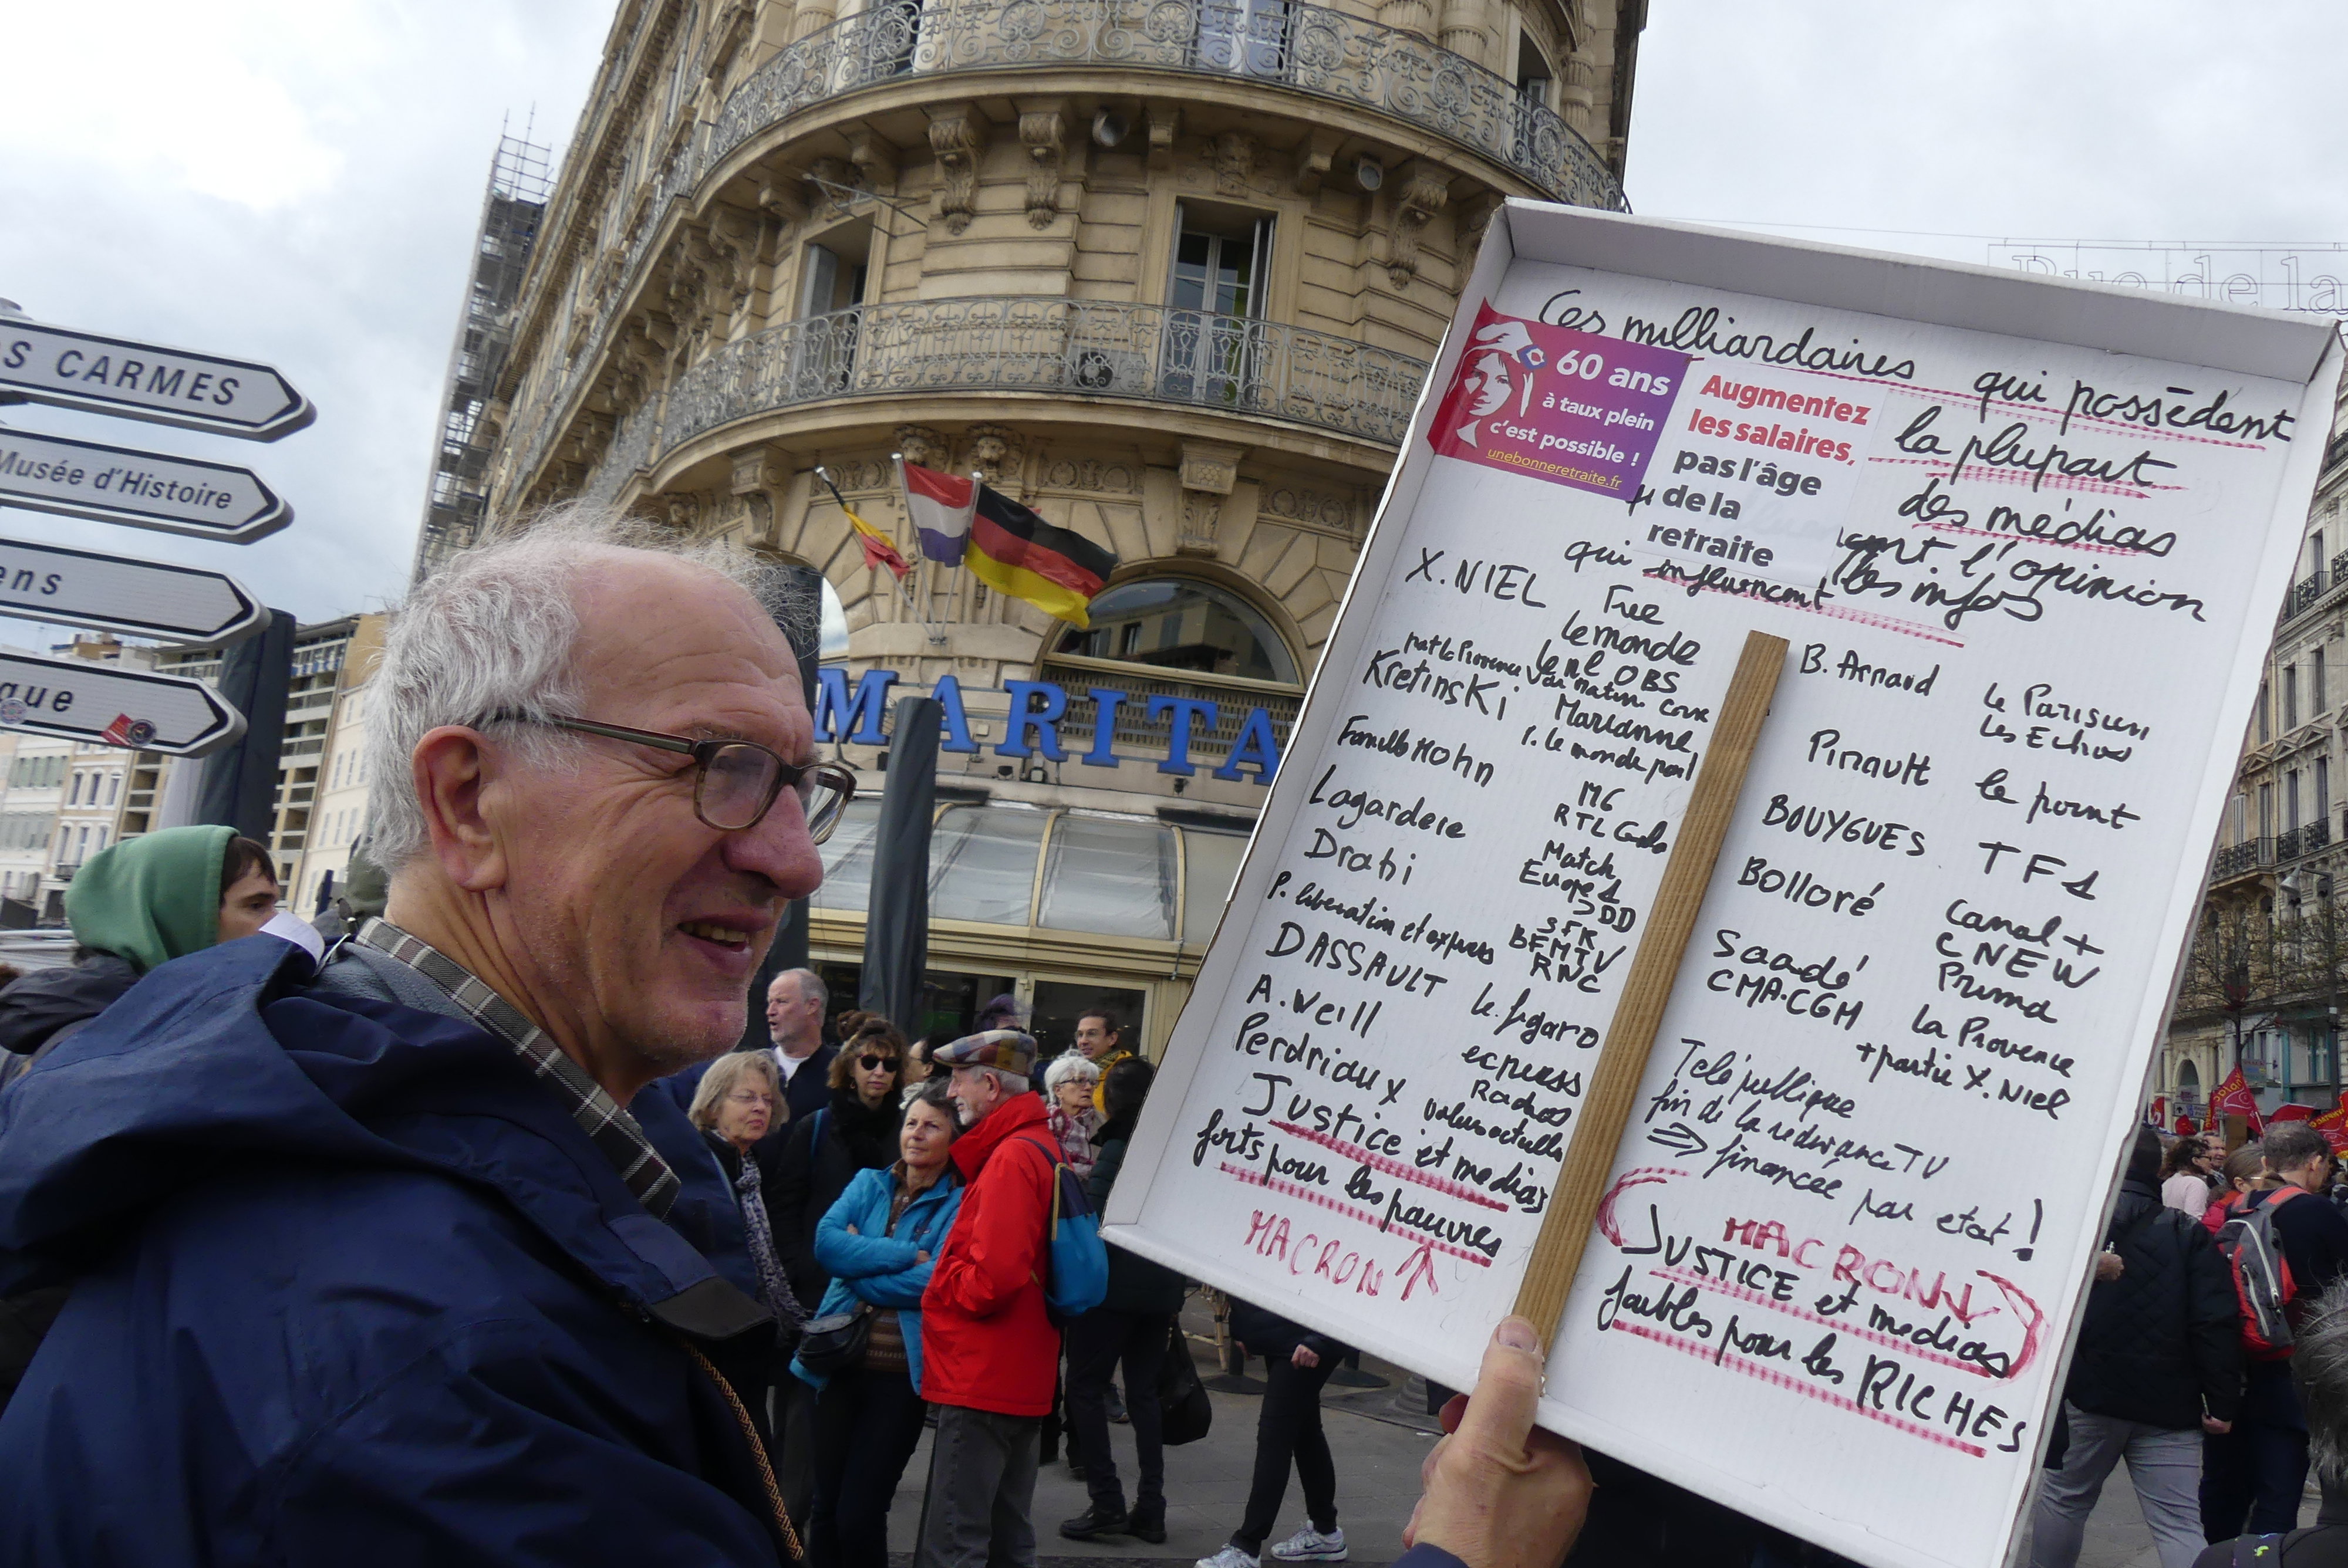 S CARMES
Musée d'Histoire
ens
que
MARITA
Rue de la
Ces milliardaires qui possèdent
la plupart
des médias
qui influencent l'opinion
les infos
60 ans
à taux plein
c'est possible !
unebonneretraite.fr
Augmentez
les salaires,
pas l'âge
de la
retraite
X. NIEL Free
le Monde
le nl OBS
Kretinski Marianne
Famille Mohn M6
RTL
Lagardere Match
Europe 1
JDD
Drahi SFR
BFMTV
RMC
P. liberation et express
DASSAULT le figaro
A. Weill express
Perdriaux
Justice et medias
forts pour les pauvres
MACRON ↑
B. Arnaud le Parisien
les Echos
Pinault le point
BOUYGUES TF1
Bolloré Canal +
CNEW
Prima
Saadé
CMA.CGM la Provence
+ partie X. Niel
Telé publique
fin de la redevance TV
⇒ financée par etat !
MACRON
JUSTICE et medias
faibles pour les RICHES